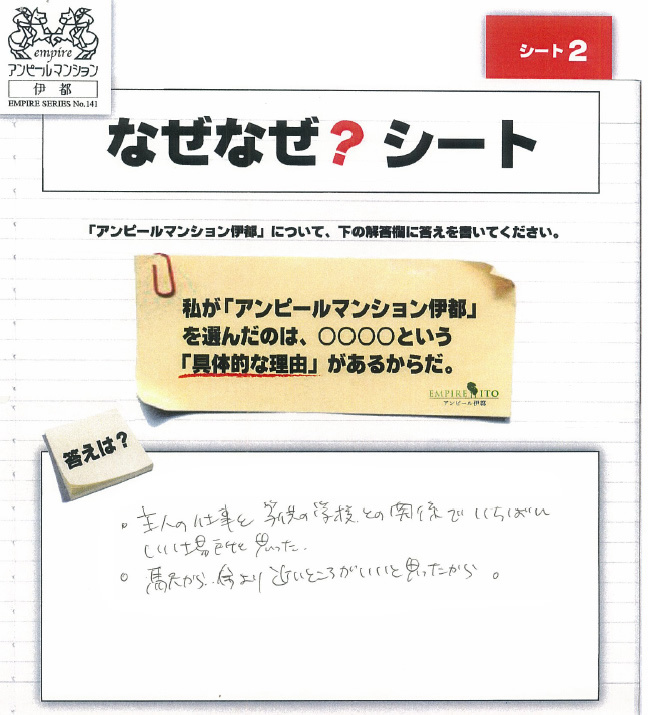 empire
アンピールマンション
伊都
EMPIRE SERIES No.141
シート2
なぜなぜ?シート
「アンピールマンション伊都」について、下の解答欄に答えを書いてください。
私が「アンピールマンション伊都」
を選んだのは、○○○○という
「具体的な理由」があるからだ。
EMPIRE ITO
アンピール伊都
答えは?
。主人の仕事と子供の学校との関係でいちばん
いい場所だと思った。
。駅から今より近いところがいいと思ったから。